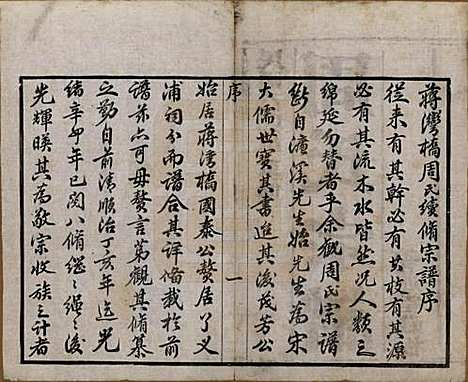 蔣灣橋周氏續脩宗譜序
從來有其幹必有其枝有其源
必有其流木水皆然况人類之
綿延勿替者乎余觀周氏宗譜
斷自濂溪先生始先生為宋
大儒世寶其書進其後茂芳公
序
一
始居蔣灣橋國泰公贅居了义
浦祠分而譜合其詳備載於前
譜茲亦可毋贅言第觀其脩纂
之勤自前清順治丁亥年迄光
緒辛卯年已閱八脩繼繼繩繩之後
先輝暎其為敬宗收族之計者